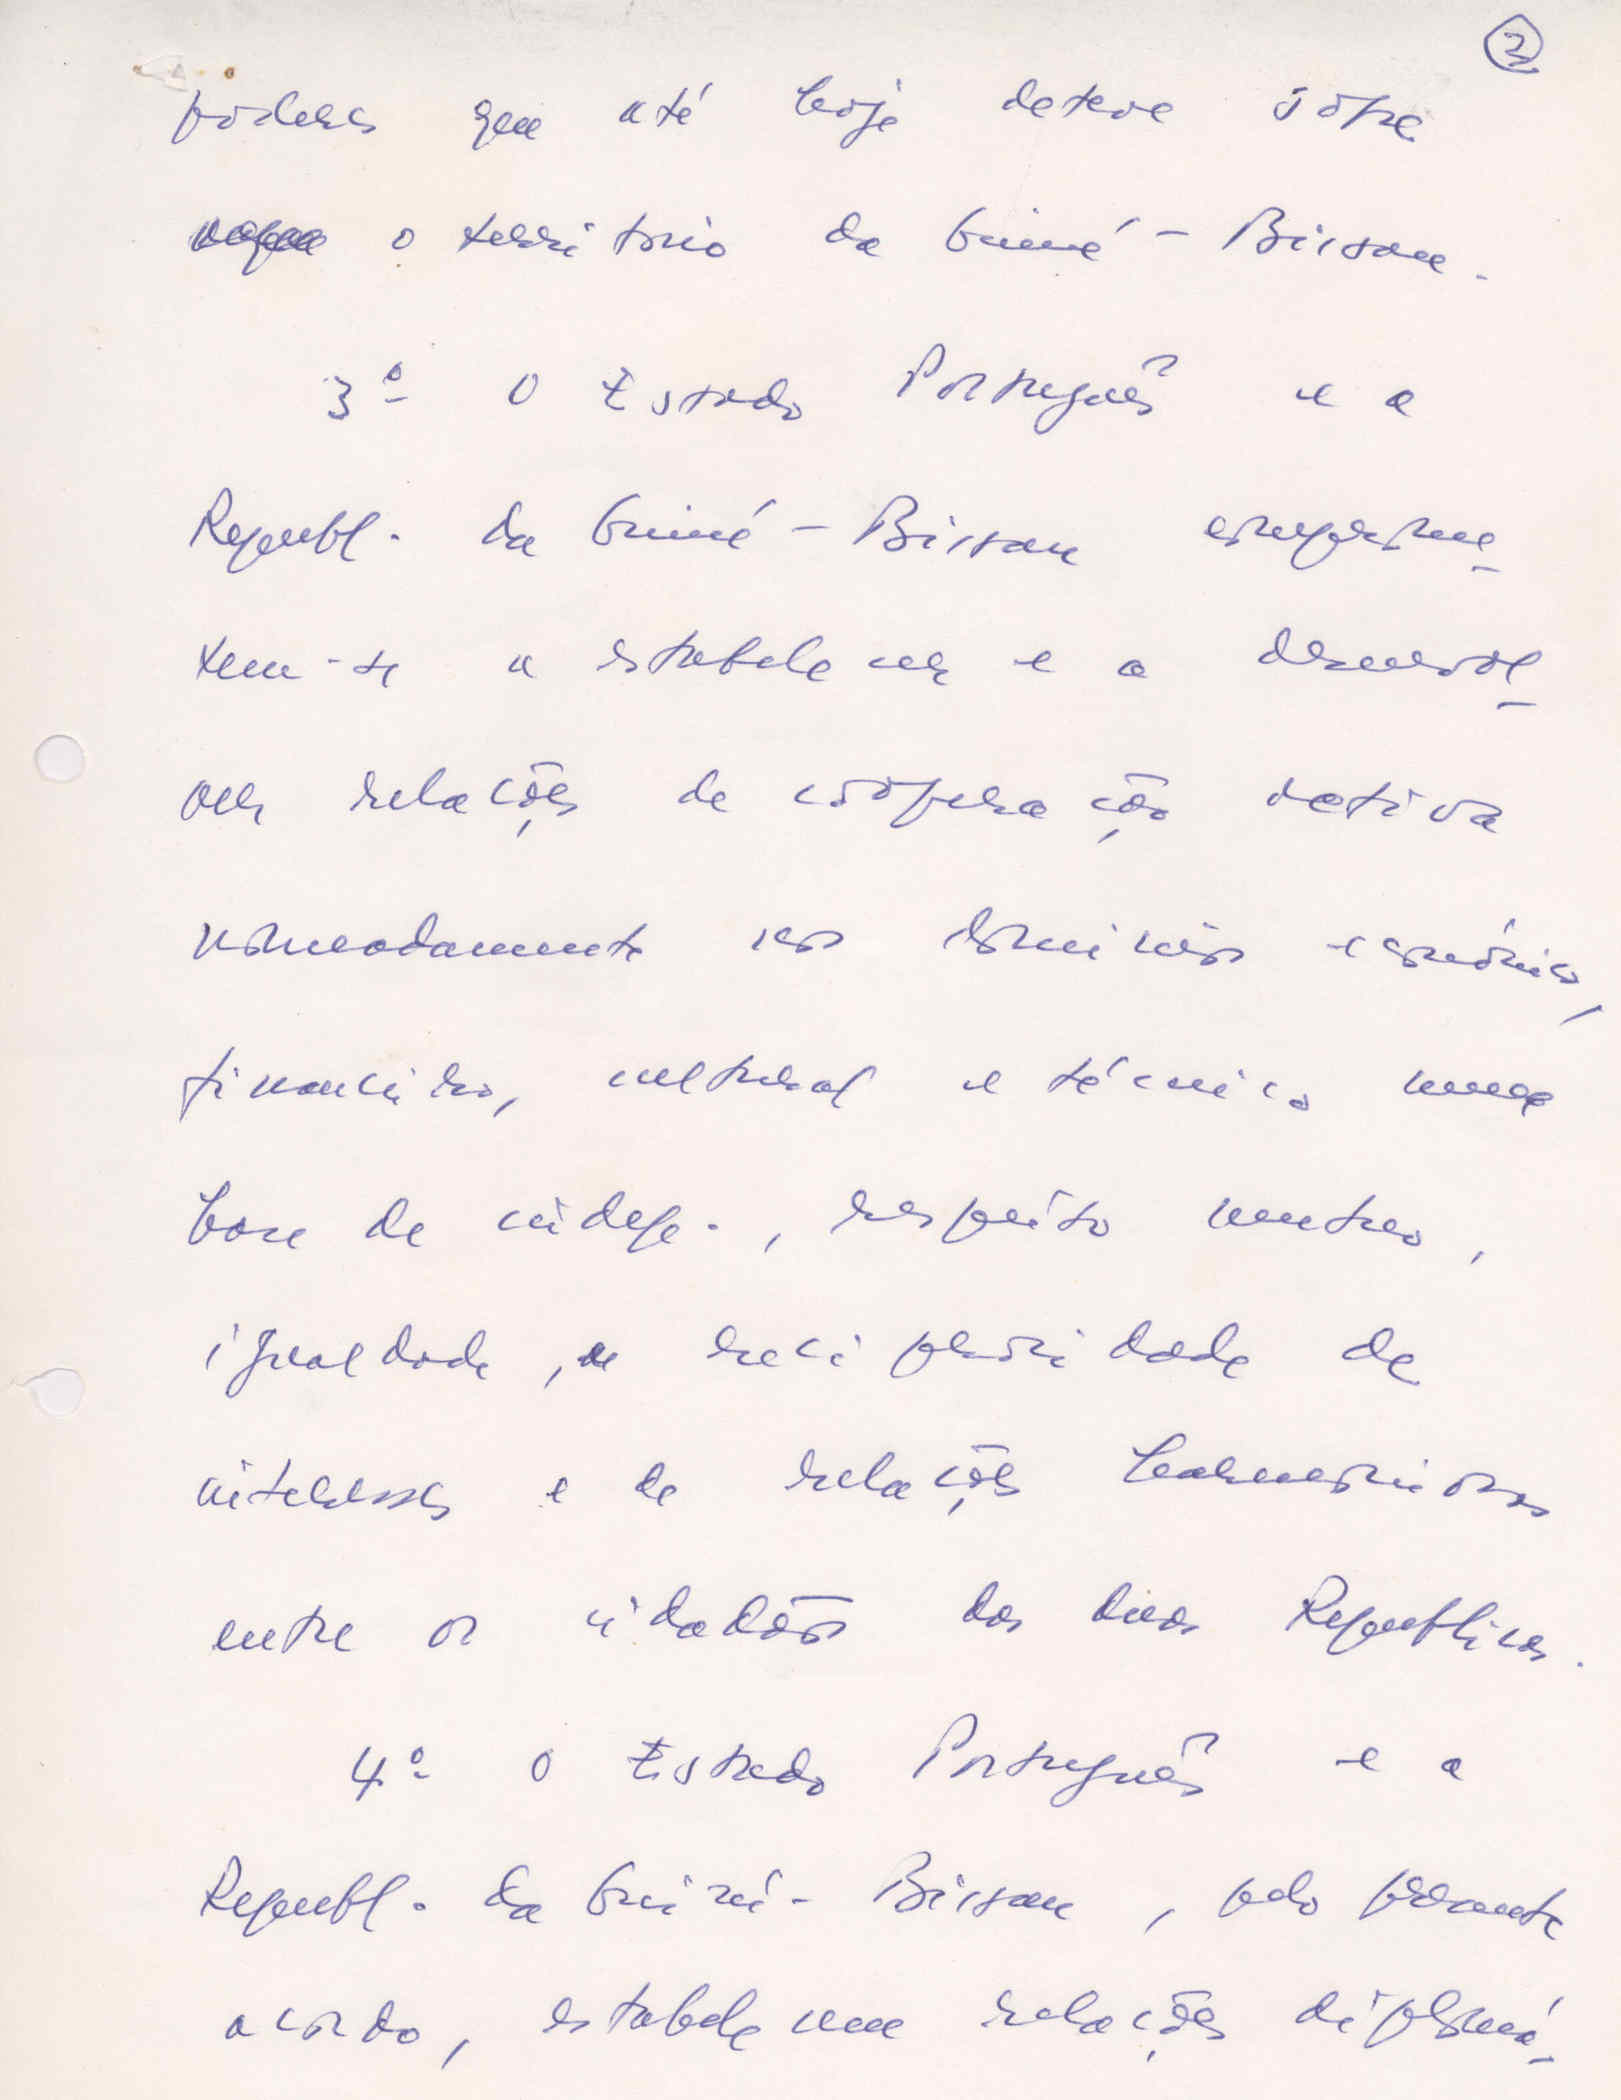 2
poderes que até hoje deteve sôbre
o territorio da Guiné - Bissau.
3º O Estado Português e a
Republ. da Guiné - Bissau comprome_
tem-se a estabelecer e a desenvol_
ver relações de coöperação activa
nomeadamente nos domínios económico,
financeiro, cultural e técnico numa
base de indep., respeito mutuo,
igualdade, e reciprocidade de
interesses e de relações harmoniosas
entre os cidadãos das duas Republicas.
4º O Estado Português e a
Republ. da Guiné - Bissau, pelo presente
acordo, estabelecem relações diplomá_